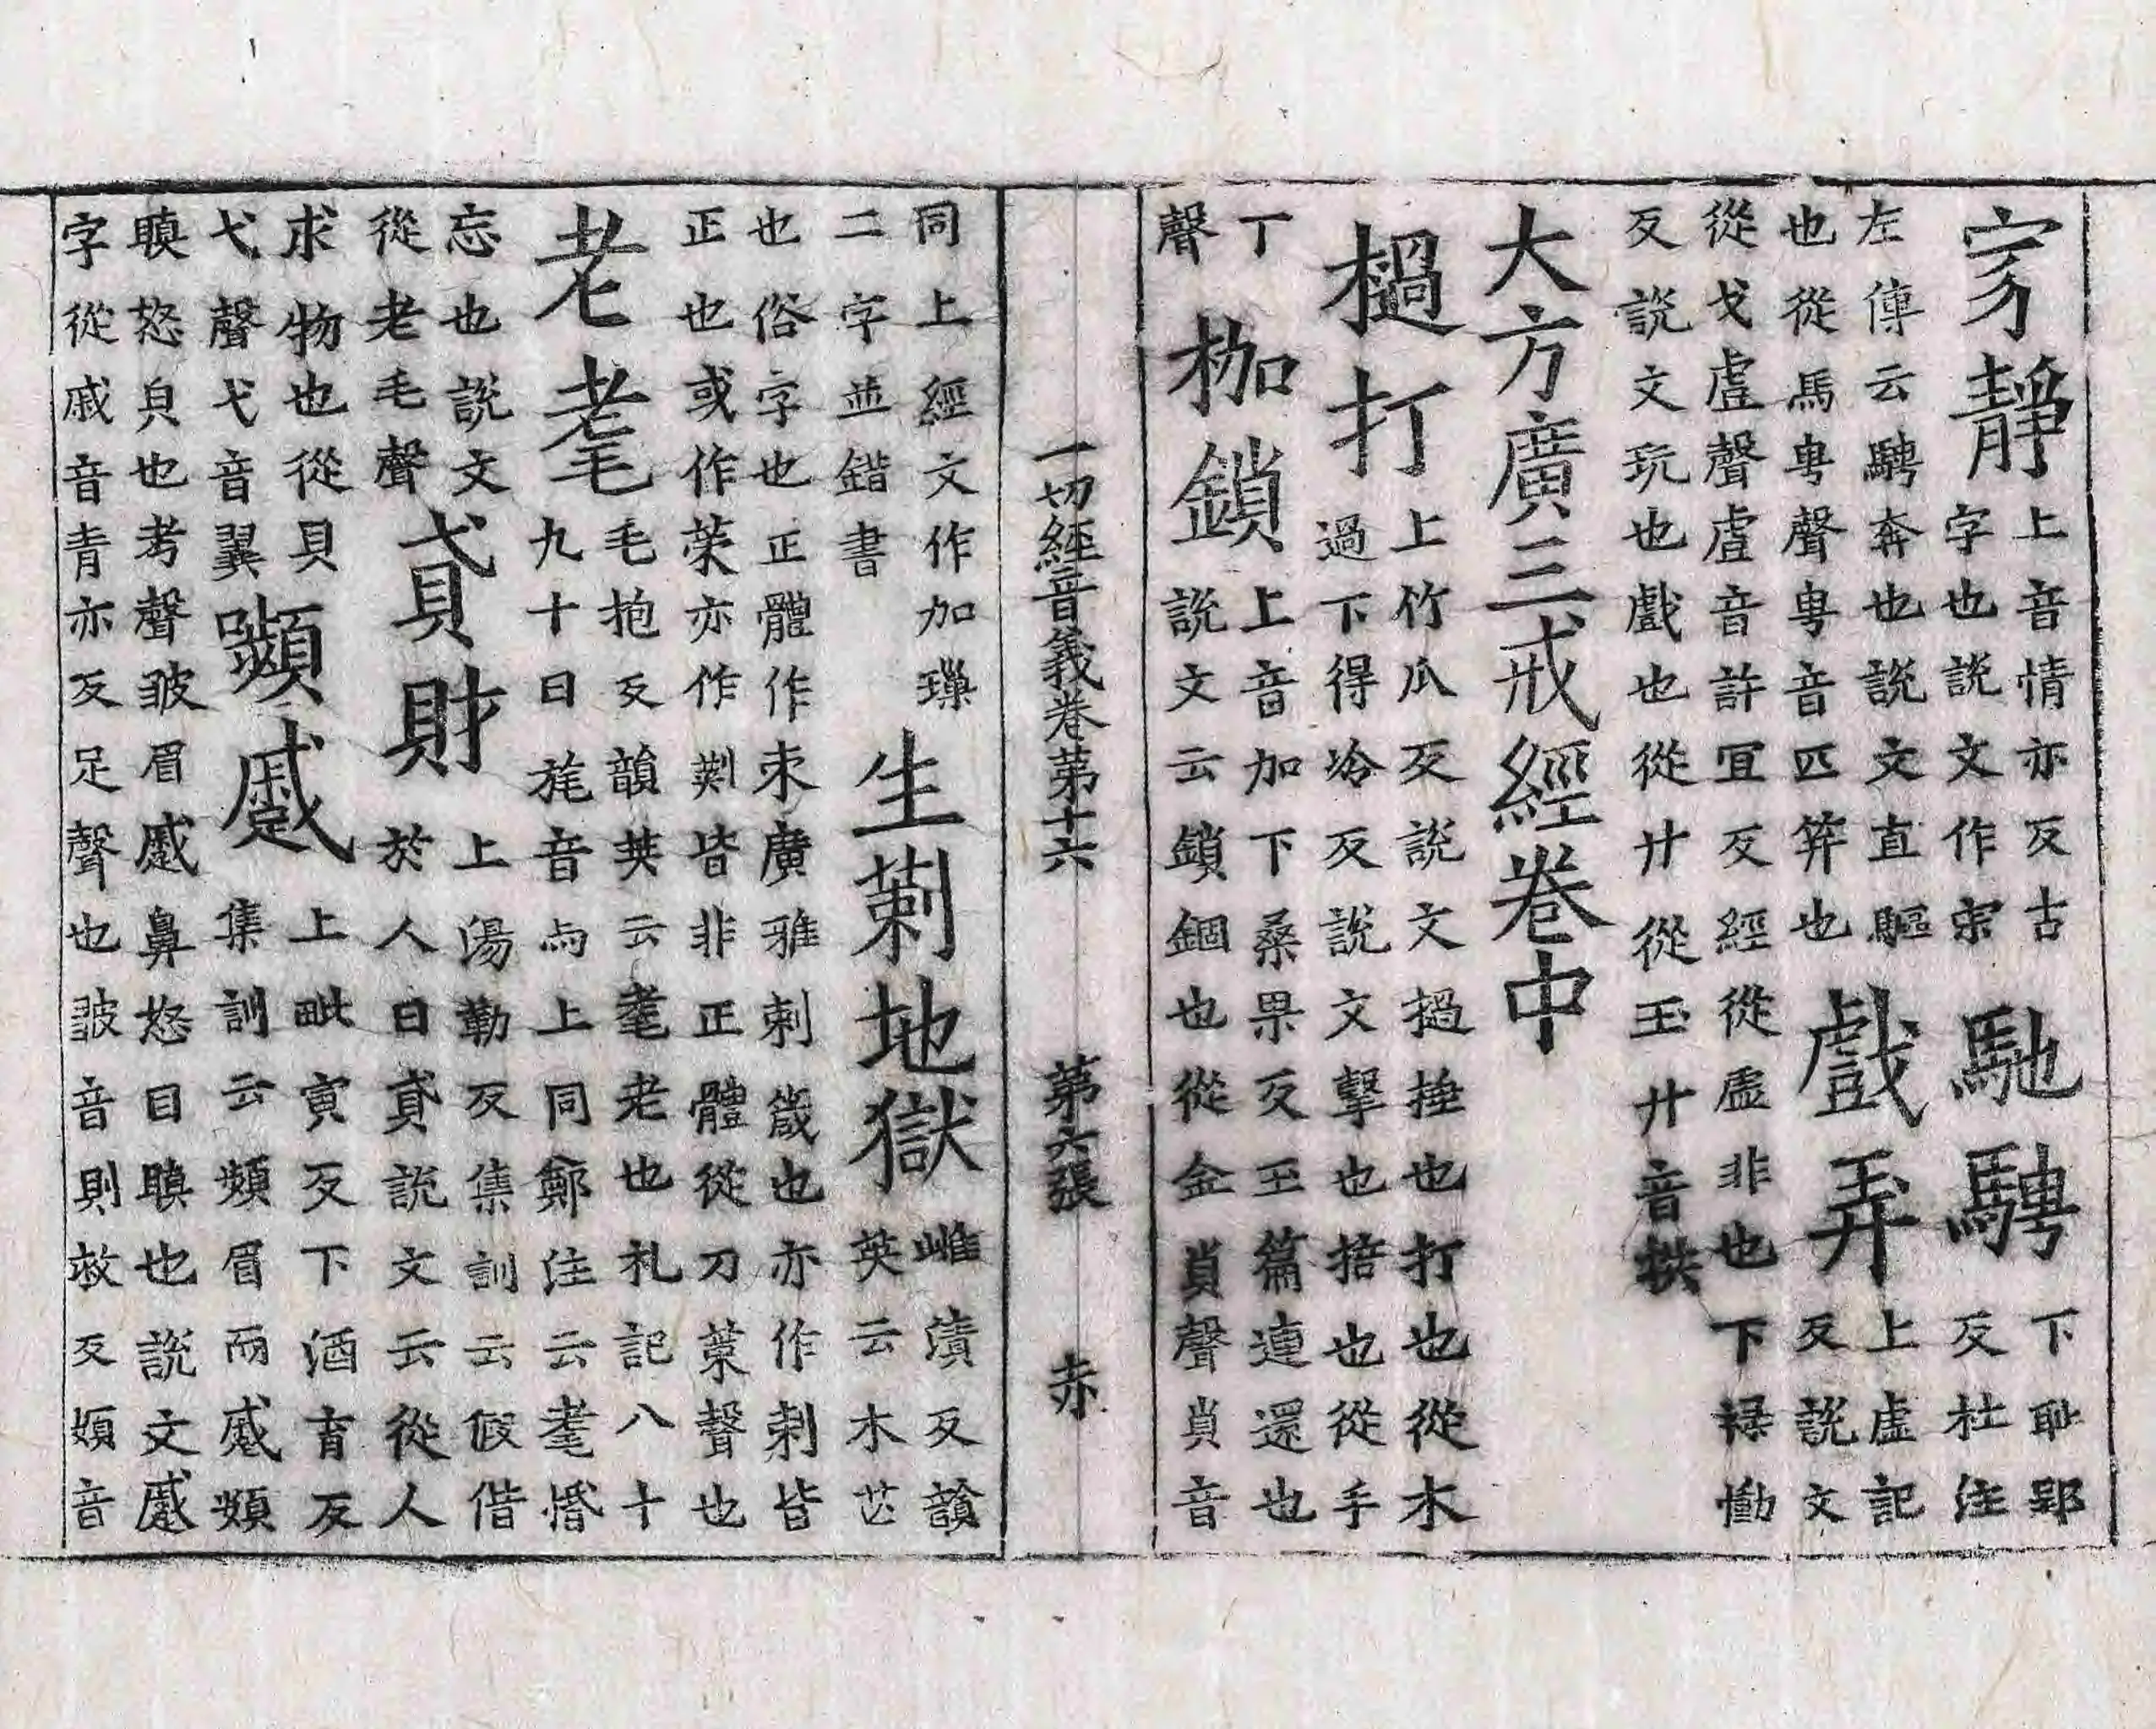 家靜上音情亦反古
字也說文作宗馳騁下耻郢
反杜注
左傳云騁奔也說文直驅
也從馬甹聲甹音匹笄也戲弄上虛記
反說文
從戈䖒聲䖒音許冝反經從虛非也下祿慟
反說文玩也戲也從廾從玉廾音拱
大方廣三戒經卷中
檛打上竹瓜反說文撾捶也打也從木
過下得冷反說文擊也掊也從手
丁
聲枷鎖上音加下桑果反玉篇連還也
說文云鎖錮也從金𧴪聲𧴪音
一切經音義卷第十六 第六張 赤
同上經文作加璅
二字並錯書生莿地獄雌漬反韻
英云木芒
也俗字也正體作朿廣雅刺箴也亦作刺皆
正也或作茦亦作㓨皆非正體從刀茦聲也
老耄毛抱反韻英云耄老也礼記八十
九十曰旄音与上同鄭注云耄惛
忘也說文
從老毛聲貣財上湯勒反集訓云假借
於人曰貣說文云從人
求物也從貝
弋聲弋音翼嚬蹙上毗寅反下酒育反
集訓云頻眉而蹙頞
瞋怒皃也考聲皺眉蹙鼻怒目瞋也說文蹙
字從戚音青亦反足聲也皺音則救反頞音